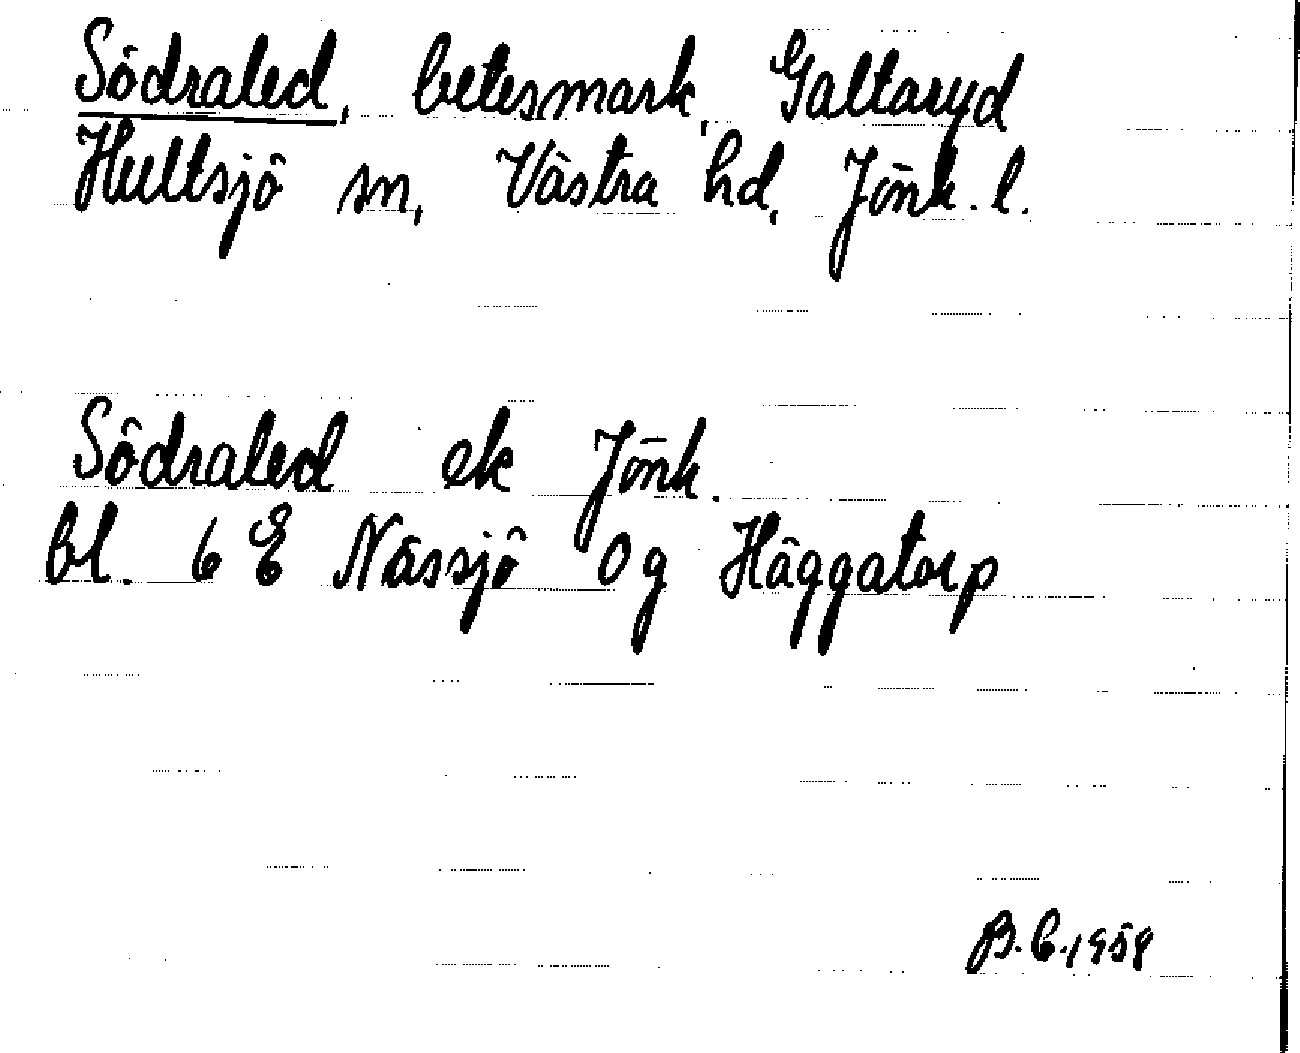 Södraled, betesmark, Galtaryd
Hultsjö sn, Västra hd, Jönk. l.
Södraled ek Jönk.
bl. 6 E Nässjö 0 g Häggatorp
B.C. 1958